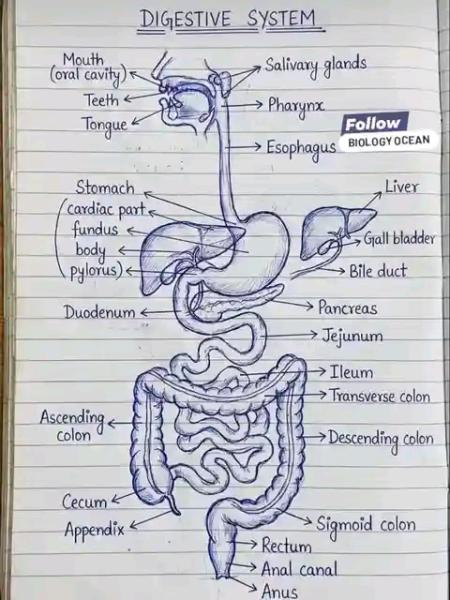 DIGESTIVE SYSTEM
Mouth
(oral cavity)
Teeth
Tongue
Salivary glands
Pharynx
Follow
BIOLOGY OCEAN
Esophagus
Stomach
(cardiac part
fundus
body
pylorus)
Liver
Gall bladder
Bile duct
Duodenum
Pancreas
Jejunum
Ileum
Transverse colon
Ascending
colon
Descending colon
Cecum
Appendix
Sigmoid colon
Rectum
Anal canal
Anus